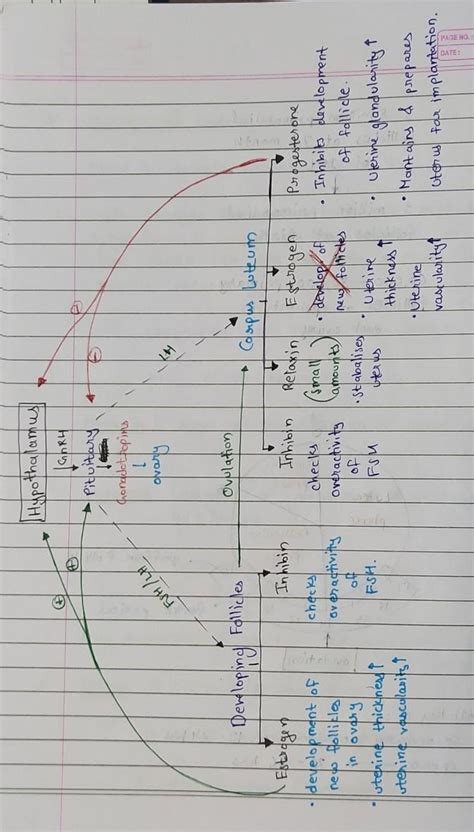 PAGE NO.:
DATE:
Hypothalamus
GnRH
Pituitary
Gonadotropins
ovary
FSH/LH
LH
Developing Follicles
Ovulation
Corpus luteum
Estrogen
• development of
new follicles
in ovary
• uterine thickness↑
uterine vascularity↑
Inhibin
checks
overactivity
of
FSH.
Inhibin
checks
overactivity
of
FSH
Relaxin
(small
amounts)
• Stabalises
uterus
Estrogen
• develop. of
new follicles
• Uterine
thickness↑
• Uterine
vascularity↑
Progesterone
• Inhibits development
of follicle.
• Uterine glandularity↑
• Mantains & prepares
Uterus for implantation.